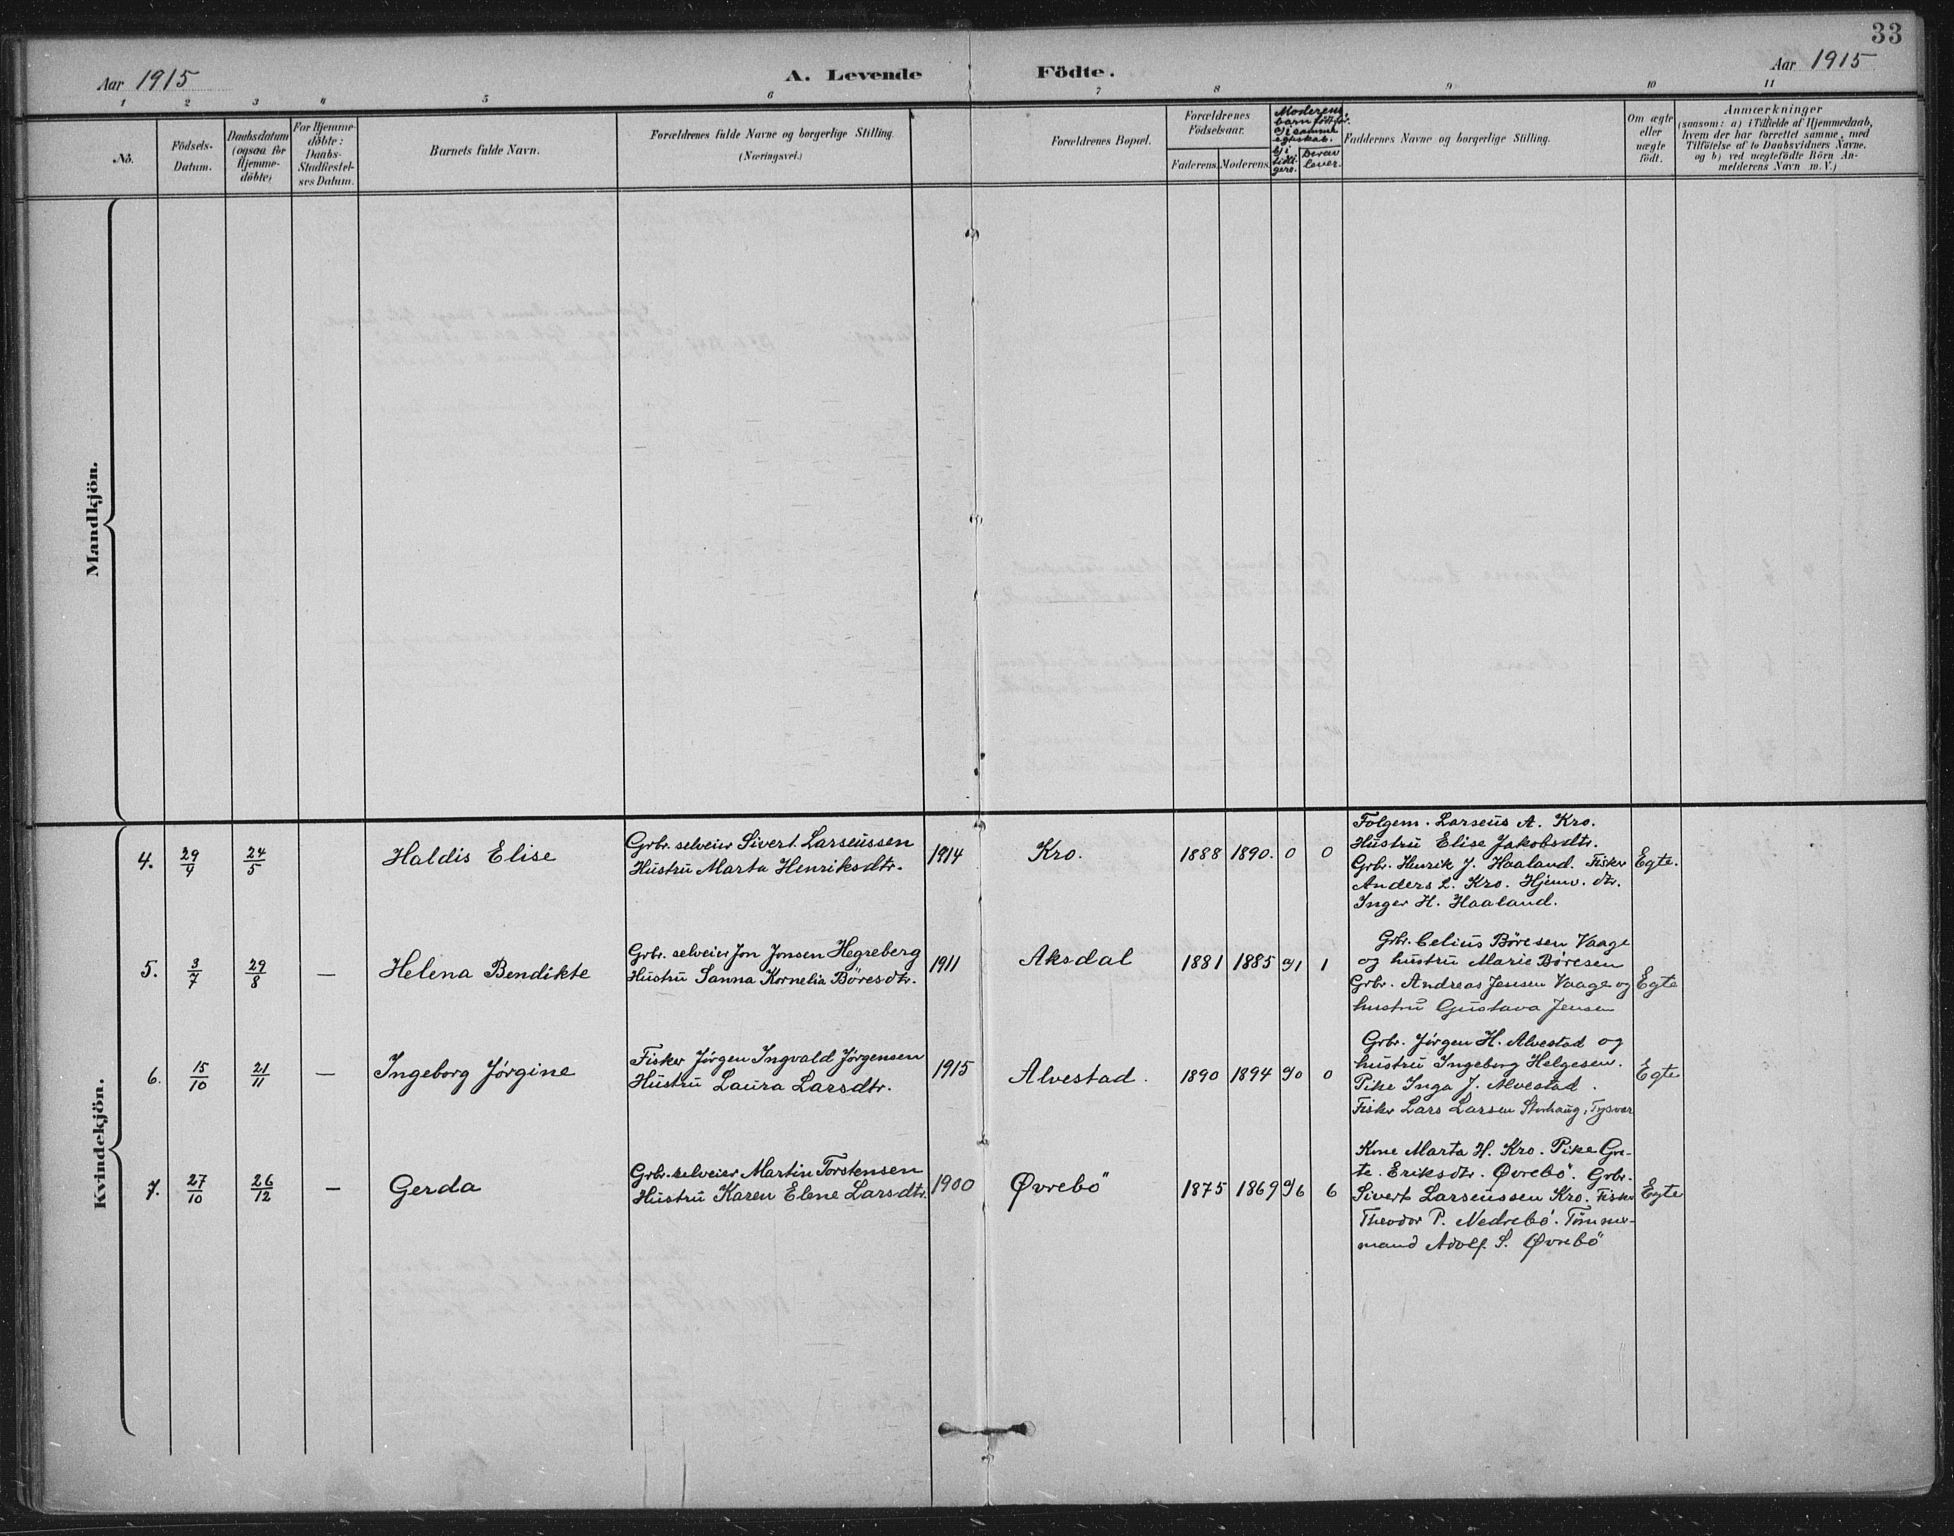 33
Aar 1915
A. Levende Födte.
Aar 1915
1 2 3 4 5 6 7 8 9 10 11
No.
Födsels-
Datum.
Daabsdatum
(ogsaa for
Hjemme-
döbte)
For Hjemme-
döbte:
Daabs-
Stadfæstel-
ses Datum.
Barnets fulde Navn.
Forældrenes fulde Navne og borgerlige Stilling.
(Næringsvei.)
Forældrenes Bopæl.
Forældrenes
Födselsaar.
Faderens.
Moderens.
Moderens
barn født før.
a/ i samme
egteskab.
b/ i
tidli-
gere.
Derav
lever.
Faddernes Navne og borgerlige Stilling.
Om ægte
eller
uægte
födt.
Anmærkninger
(saasom: a) i Tilfælde af Hjemmedaab,
hvem der har forrettet samme, med
Tilföielse af to Daabsvidners Navne.
og b) ved uægtefödte Börn An-
melderens Navn m. V.)
Mandkjön.
Kvindekjön.
4. 29/4 24/5 Haldis Elise
Grbr. selveier Sivert Larseussen
Hustru Marta Henriksdtr.
1914 Kro. 1888 1890. 0 0
Folgem. Larseus A. Kro.
Hustru Elise Jakobsdtr.
Grbr. Henrik J. Haaland. Fisker
Anders L. Kro. Hjemv. dtr.
Inger H. Haaland.
Egte.
5. 3/7 29/8 — Helena Bendikte
Grbr. selveier Jon Jonsen Hegreberg
Hustru Sanna Kornelia Böresdtr.
1911 Aksdal 1881 1885 a/1 1
Grbr. Celius Böresen Vaage
og hustru Marie Böresen
Grbr. Andreas Jensen Vaage og
hustru Gustava Jensen
Egte
6. 15/10 21/11 — Ingeborg Jørgine
Fisker Jørgen Ingvald Jørgensen
Hustru Laura Larsdtr.
1915 Alvestad. 1890 1894 a/0 0
Grbr. Jörgen H. Alvestad og
hustru Ingeborg Helgesen.
Pike Inga J. Alvestad.
Fisker Lars Larsen Storhaug, Tysvær
Egte
7. 27/10 26/12 — Gerda
Grbr. selveier Martin Torstensen
Hustru Karen Elene Larsdtr.
1900 Øvrebö 1875 1869 a/6 6
Kone Marta H. Kro. Pike Gre-
te. Eriksdtr. Øvrebö. Grbr.
Sivert Larseussen Kro. Fisker
Theodor P. Nedrebö. Tömmer-
mand Adolf S. Øvrebö
Egte